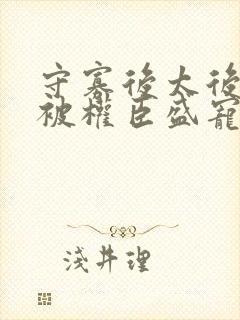 守寡後太後
被權臣盛寵
淺井理